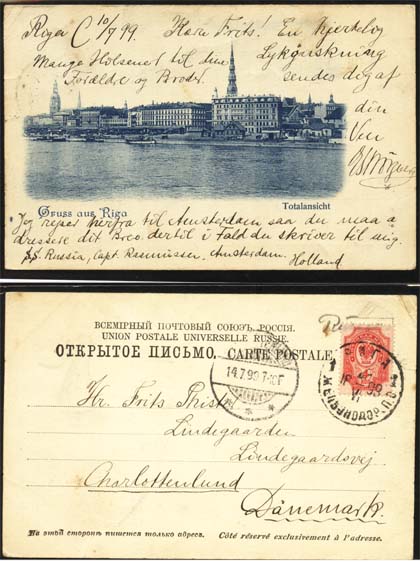 Riga C 10/7 99. Kære Frits! En hjertelig
Lykønskning
Mange Hilsener til dine
Forældre og Broder.
sendes dig af
din
Ven
Gruss aus Riga
Totalansicht
Jeg rejser herfra til Amsterdam saa du maa a
dressere dit Brev dertil i Fald du skriver til mig.
SS. Russia, Capt. Rasmussen, Amsterdam.
Holland
ВСЕМІРНЫЙ ПОЧТОВЫЙ СОЮЗЪ. РОССІЯ.
UNION POSTALE UNIVERSELLE RUSSIE.
ОТКРЫТОЕ ПИСЬМО. CARTE POSTALE.
14.7.99.7-10F
РИГА
1
99
VI
Hr. Frits
Lindegaarden
Lindegaardsvej
Charlottenlund
Dänemark.
На этой сторонѣ пишется только адресъ.
Côté réservé exclusivement à l'adresse.